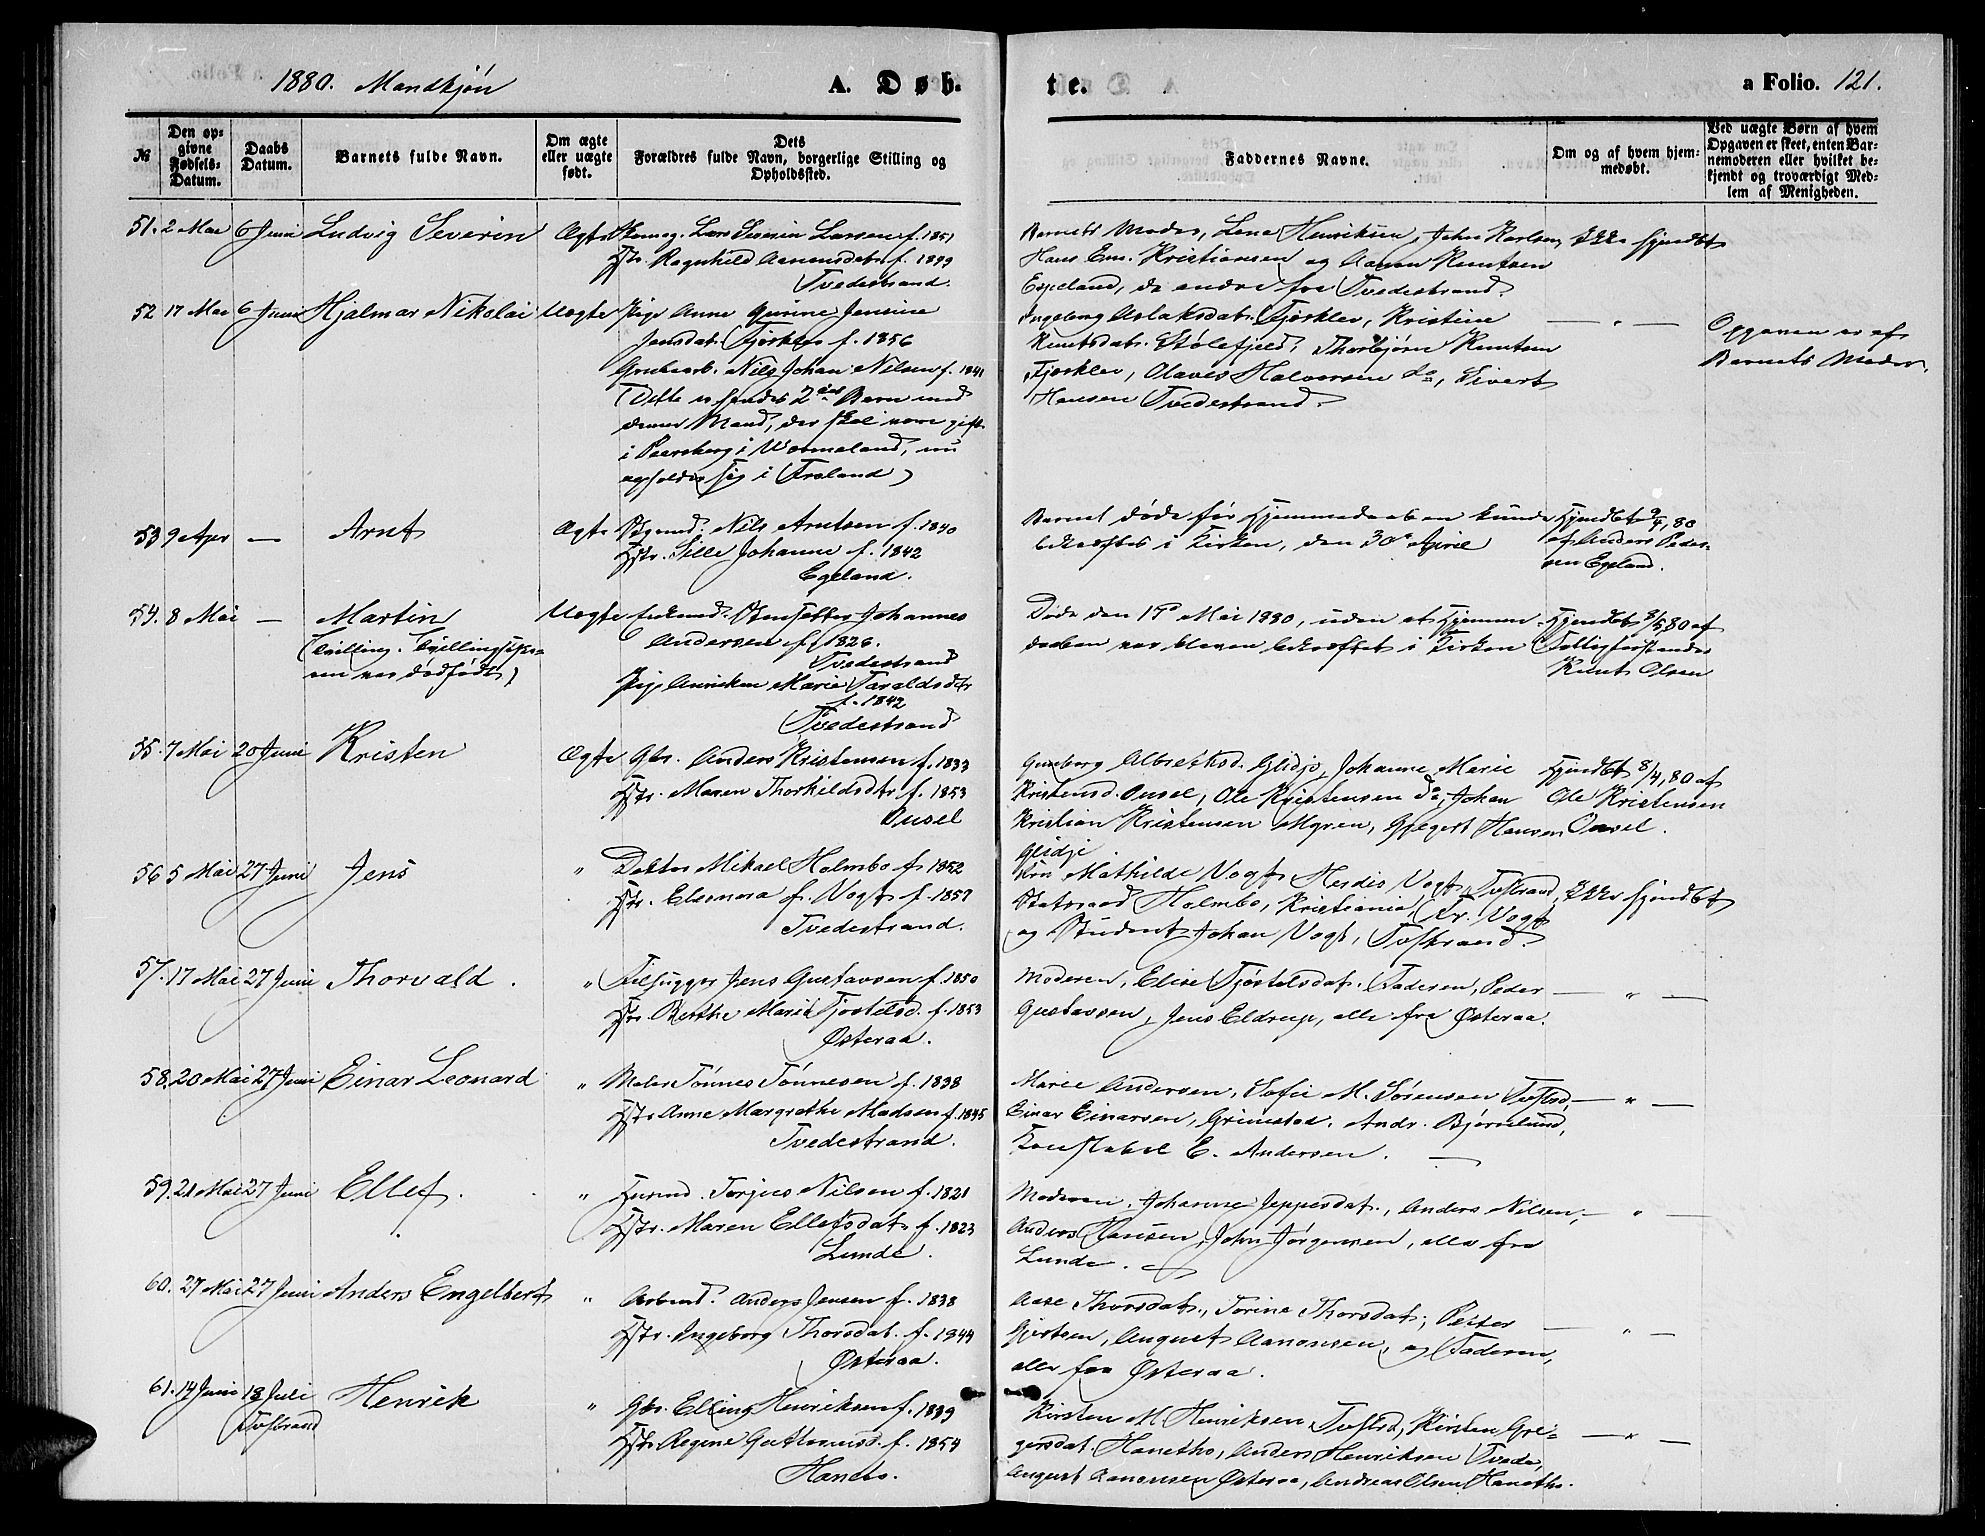 1880. Mandkjøn
A. Døb-
te.
a Folio. 121.
№
Den op-
givne
Fødsels-
Datum.
Daabs
Datum.
Barnets fulde Navn.
Om ægte
eller uægte
født.
Dets
Forældres fulde Navn, borgerlige Stilling og
Opholdssted.
Faddernes Navne.
Om og af hvem hjem-
medøbt.
Ved uægte Børn af hvem
Opgaven er skeet, enten Bar-
nemoderen eller hvilket be-
kjendt og troværdigt Med-
lem af Menigheden.
51. 2 Mai 6 Juni Ludvig Severin Ægte Lars Severin Larsen f. 1851
Hstr. Ragnhild Aanonsdatr. f. 1849
Tvedestrand.
Barnets Moder, Lene Henriksen, John Karlsen,
Hans Em. Kristiansen og Aanon Knutsen
Espeland, de andre fra Tvedestrand.
Ikke hjemdbt
52 17 Mai 6 Juni Hjalmar Nikolai Uægte Pige Anne Gurine Jensine
Jensdat. Fjærklev f. 1856
Grubearb. Nils Johan Nilsen f. 1841
(Dette er hendes 2det Barn med
denne Mand, der skal være gift
i Persberg i Wermeland, nu
opholder sig i Froland)
Ingeborg Aslaksdat. Fjærklev, Kristine
Knutsdat. Stølefjeld, Thorbjørn Knutsen
Fjærklev, Olaves Halvorsen do, Sivert
Hansen Tvedestrand.
— " —
Opgaven er af
Barnets Moder.
53 9 Apr — Arnt Ægte Nils Arntsen f. 1840
Hstr. Sille Johanne f. 1842
Egeland.
Barnet døde før Hjemmedaaben kunde
bekræftes i Kirken, den 30te April
Hjemdbt 9/4, 80
af Anders Peder-
sen Egeland.
54. 8 Mai — Martin Uægte Enkemd. Stensetter Johannes
(Tvilling. Tvillingsøste-
ren var dødfødt)
Andersen f. 1826.
Tvedestrand
Pige Anniken Marie Taraldsdtr
f. 1842
Tvedestrand
Døde den 17de Mai 1880, uden at Hjemme-
daaben var bleven bekræftet i Kirken
Hjemdbt 8/5, 80 af
Fattigforstander
Knut Olsen
55. 7 Mai 20 Juni Kristen Ægte Gbr. Anders Kristensen f. 1833
Hstr. Maren Thorkildsdtr f. 1853
Ousel
Gunborg Albretsd. Glidje, Johanne Marie
Kristensd. Ousel, Ole Kristensen do, Johan
Kristian Kristensen Myren, Gjegert Hansen
Glidje
Hjemdbt 8/4, 80 af
Ole Kristensen
Ousel.
56 5 Mai 27 Juni Jens " Doktor Mikael Holmbo f. 1852
Hstr. Eleonora f. Vogt f. 1857
Tvedestrand.
Mathilde Vogt, Herdis Vogt, Tvstrand,
Statsraad Holmbo, Kristiania, Fr. Vogt
og Student Johan Vogt, Tvstrand.
Ikke hjemdbt
57. 17 Mai 27 Juni Thorvald. " Filhugger Jens Gustavsen f. 1850
Hstr. Berthe Marie Tjostelsd. f. 1853
Østeraa.
Moderen, Elise Tjøstelsdat. Faderen, Peder
Gustavsen, Jens Eldrup, alle fra Østeraa.
— " —
58. 20 Mai 27 Juni Einar Leonard " Maler Tønnes Tønnesen f. 1838
Hstr. Anne Margrethe Madsen f. 1845
Tvedestrand.
Marie Andersen, Sofie M. Sørensen Tvstd,
Einar Einarsen, Grimstad. Andr. Bjørnlund,
Konstabel E. Andersen. —
— " —
59. 21 Mai 27 Juni Ellef. " Husmd. Torjus Nilsen f. 1821
Hstr. Maren Ellefsdat. f. 1823
Lunde.
Moderen, Johanne Jeppesdat., Anders Nilsen,
Anders Hansen, John Jørgensen, alle fra
Lunde.
— " —
60. 27 Mai 27 Juni Anders Engelbert " Arbmd. Anders Jensen f. 1838
Hstr. Ingeborg Thorsdat. f. 1844
Østeraa.
Aase Thorsdat., Torine Thorsdat., Peder
Gjertsen, August Aanonsen, og Faderen,
alle fra Østeraa.
— " —
61. 14 Juni 18 Juli Henrik " Gbr. Elling Henriksen f. 1839
Tvstrand
Hstr. Regine Guttormsd. f. 1854
Hanto.
Kirsten M Henriksen Tvstrd, Kirsten Gre-
gersdat. Hanetho, Anders Henriksen Tvede,
August Aanonsen Østeraa, Andreas Olsen Hanetho.
— " —